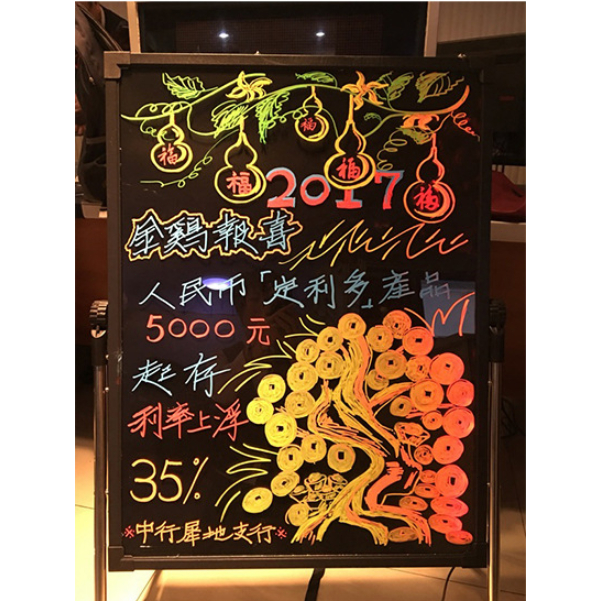 福 福 福 福 福
2017
金鷄報喜
人民币「定利多」產品
5000元
起存
利率上浮
35%
※中行犀地支行※